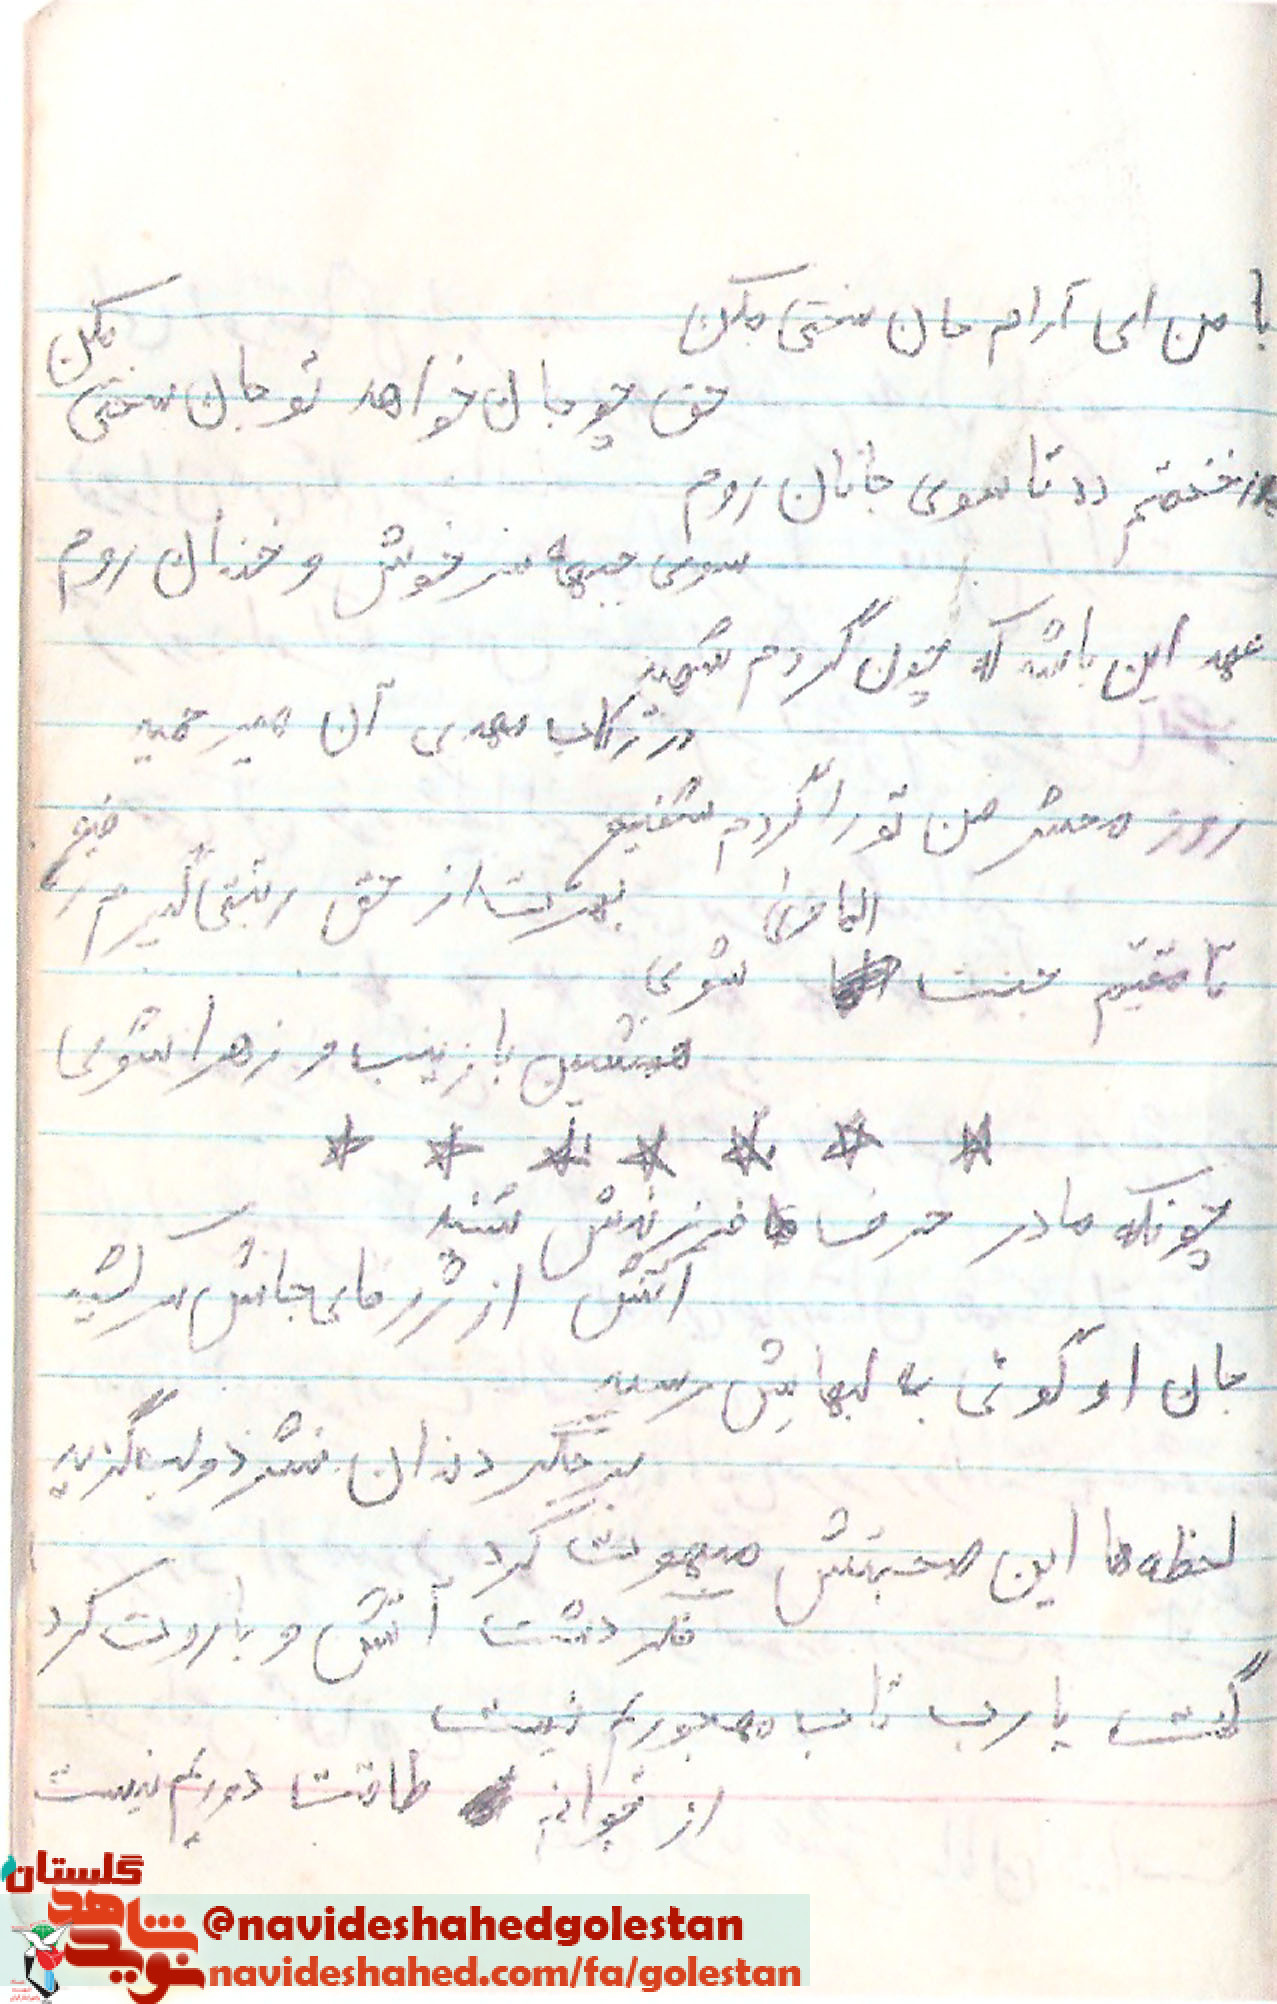 با من ای آرام جان سختی مکن
حق چو جان خواهد تو جان سختی مکن
رخصتم ده تا سوی جانان روم
سوی جبهه سرخوش و خندان روم
عهد این باشد که چون گردم شهید
در رکاب مهدی آن میر حمید
روز محشر من تو را گردم شفیع
بهرت از حق رتبتی گیرم رفیع
تا مقیم جنت الماوی شوی
همنشین با زینب و زهرا شوی
* * * * * * *
چونکه مادر حرف فرزندش شنید
آتش از ژرفای جانش سر کشید
جان او گوئی به لبهایش رسید
بر جگر دندان فشرد و لب گزید
لحظه‌ها این صحبتش مبهوت کرد
آتش و باروت کرد
گفت یا رب تاب مهجوریم نیست
از جوانم طاقت دوریم نیست
گلستان
نوید شاهد
@navideshahedgolestan
navideshahed.com/fa/golestan